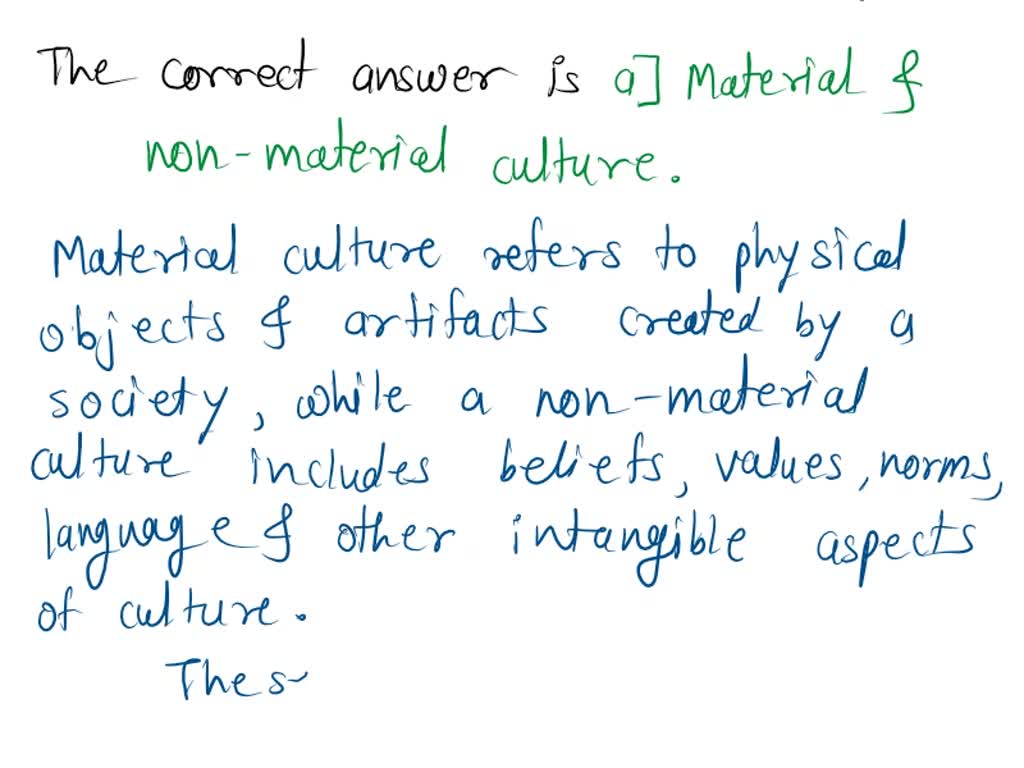 The correct answer is a] Material &
non-material culture.
Material culture refers to physical
objects & artifacts created by a
society, while a non-material
culture includes beliefs, values, norms,
language & other intangible aspects
of culture.
Thes